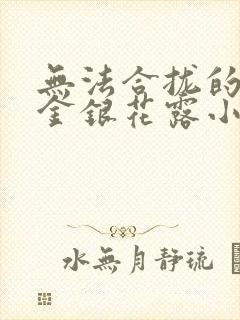 無法合拢的
金銀花露小
水無月靜琉